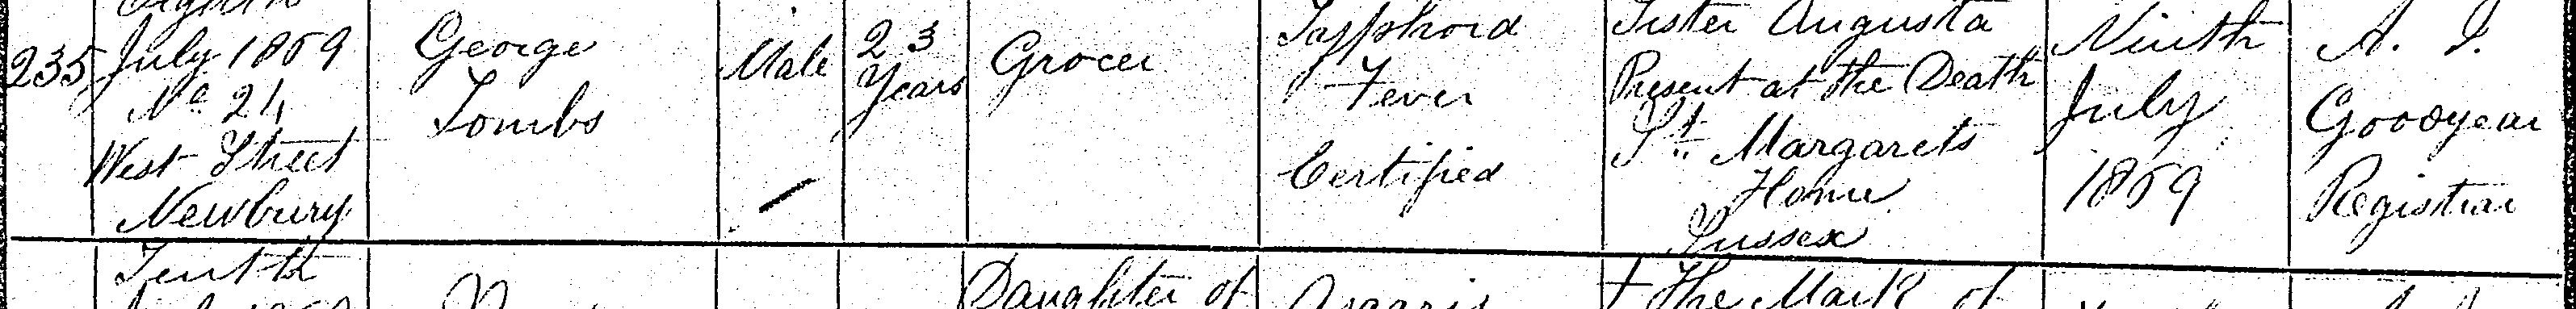 Eighth
235 July 1869
No 24
West Street
Newbury
George
Tombs
Male
23
Years
Grocer
Typhoid
Fever
Certified
Sister Augusta
Present at the Death
St. Margarets
Home
Sussex
Ninth
July
1869
A. J.
Goodyear
Registrar
Tenth
Daughter of
+ The Mark of